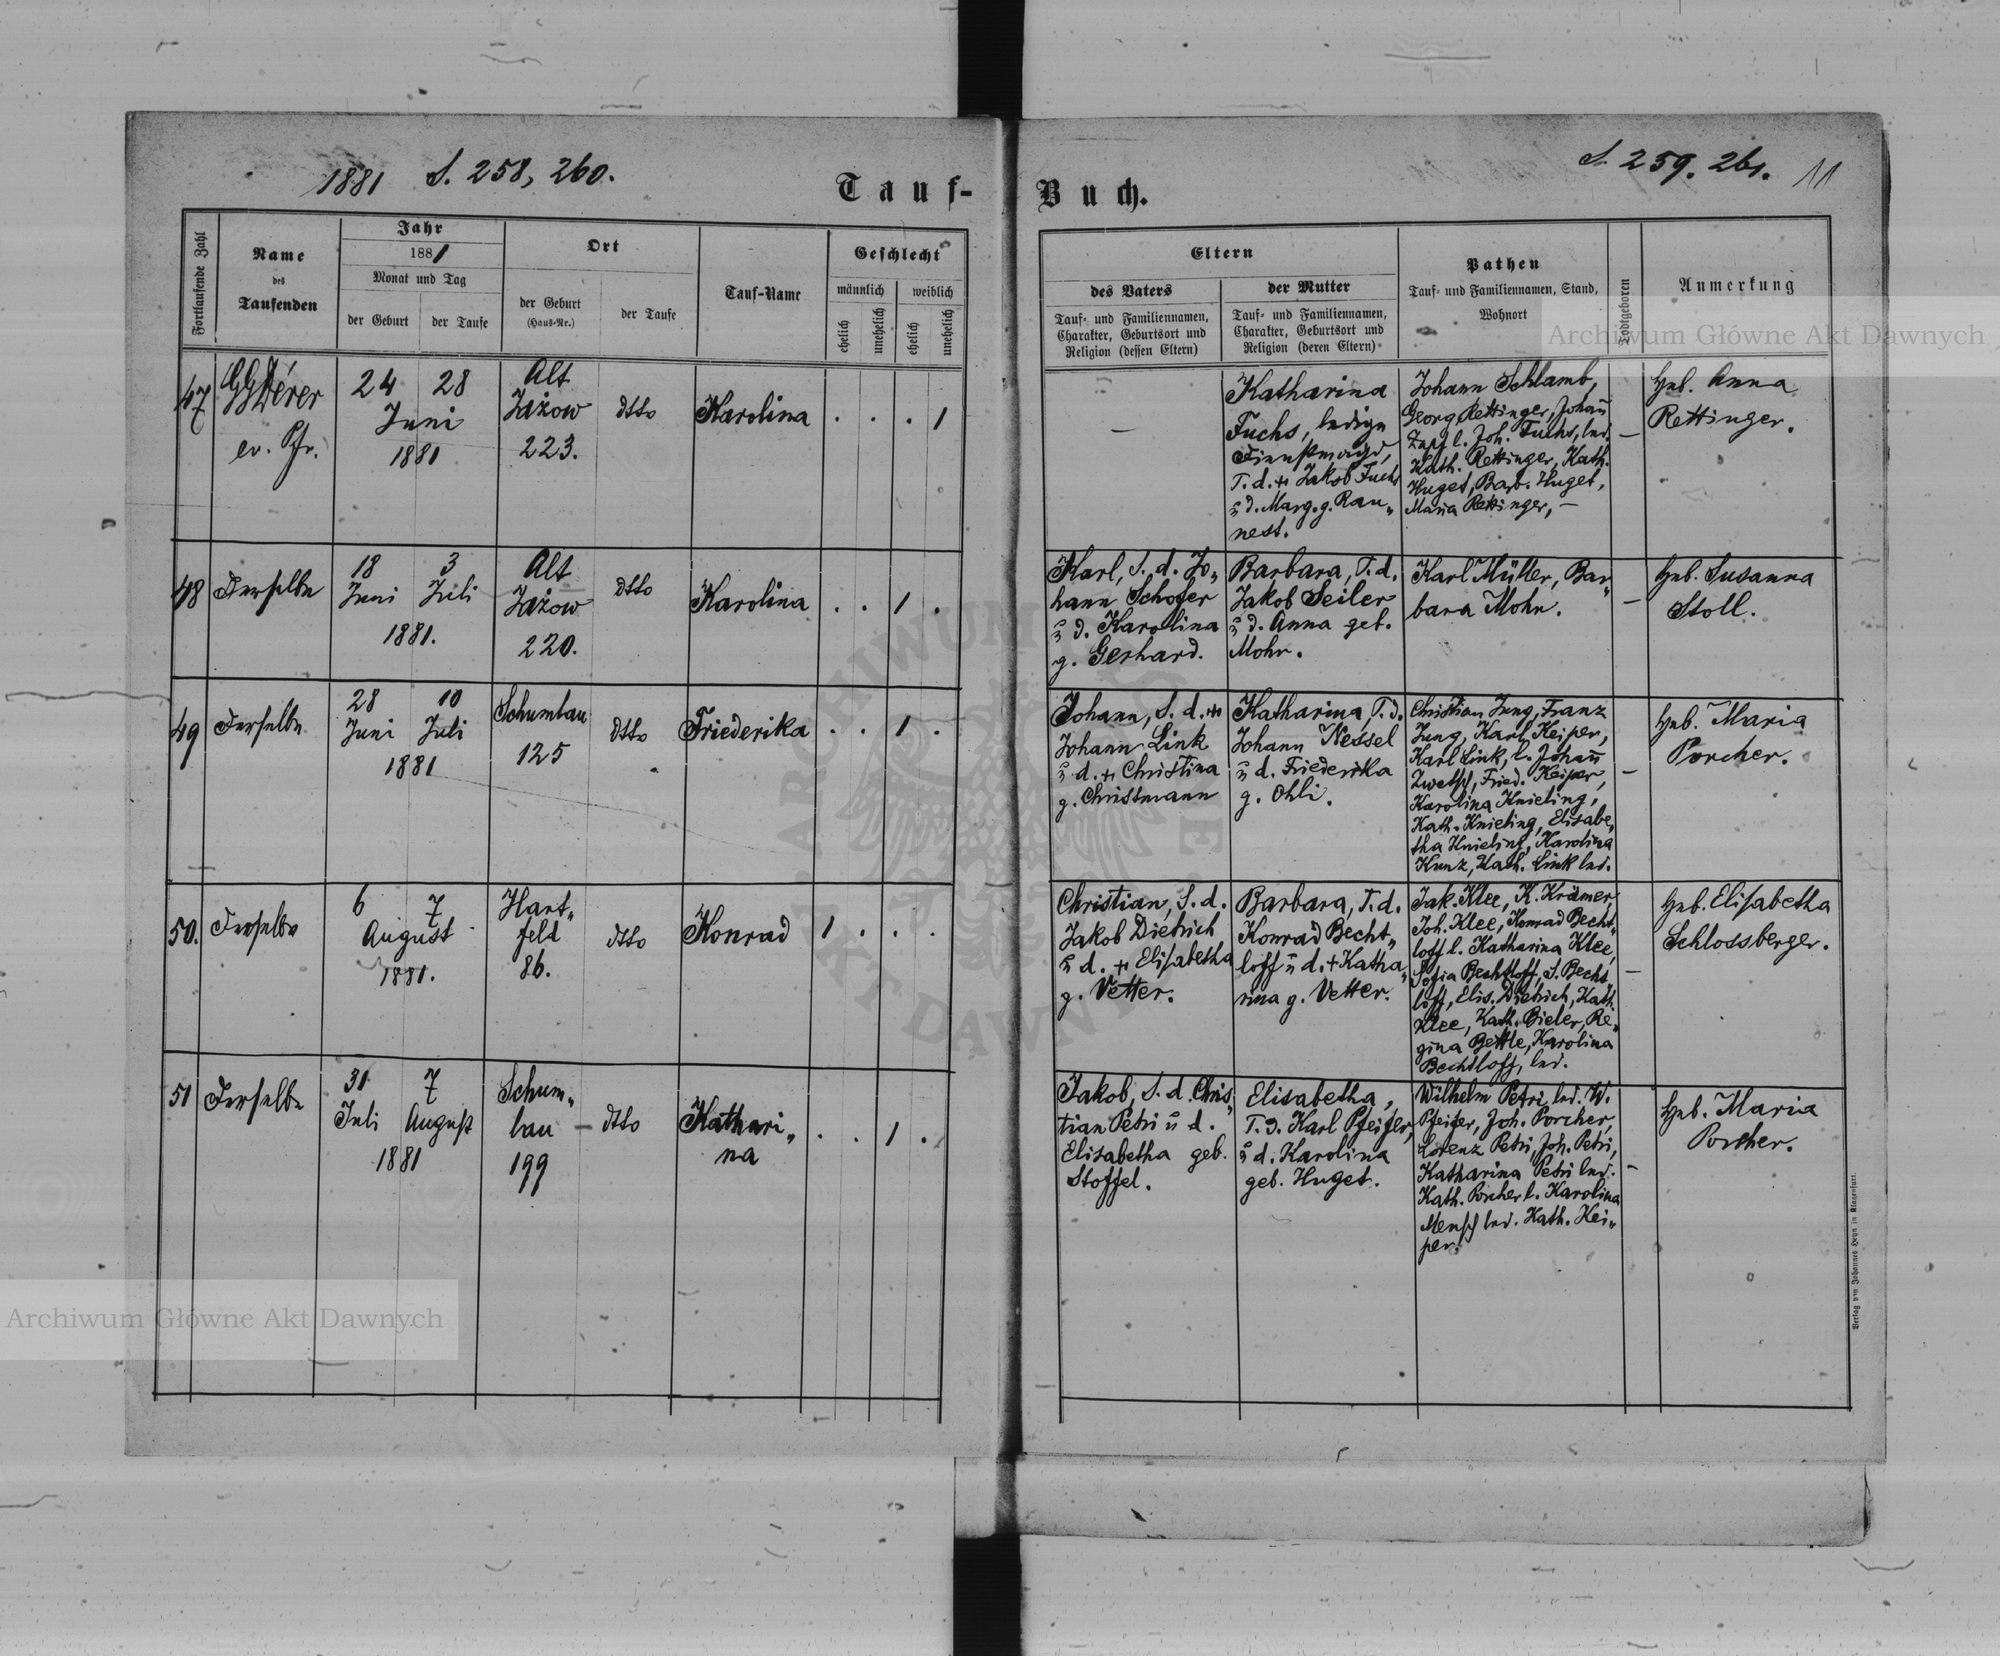 1881 S. 258, 260.
Tauf-
Fortlaufende Zahl
Name
des
Taufenden
Jahr
1881
Monat und Tag
der Geburt
der Taufe
Ort
der Geburt
(Haus-Nr.)
der Taufe
Tauf-Name
Geschlecht
männlich
weiblich
ehelich
unehelich
ehelich
unehelich
47
ev. Pfr.
24 28
Juni
1881
Alt
Jażow
223.
dtto
Karolina
. . . 1
48
Derselbe
18 3
Juni Juli
1881.
Alt
Jażow
220.
dtto
Karolina
. . 1 .
49
Derselbe
28 10
Juni Juli
1881
Schumlau
125
dtto
Friederika
. . 1 .
50.
Derselbe
6 7
August
1881.
Hart„
feld
86.
dtto
Konrad
1 . . .
51
Derselbe
31 7
Juli August
1881
Schum„
lau
199
dtto
Kathari„
na
. . 1 .
S. 259. 261. 11
Buch.
Eltern
des Vaters
Tauf- und Familiennamen,
Charakter, Geburtsort und
Religion (dessen Eltern)
der Mutter
Tauf- und Familiennamen,
Charakter, Geburtsort und
Religion (deren Eltern)
Pathen
Tauf- und Familiennamen, Stand,
Wohnort
Todtgeboren
Anmerkung
—
Katharina
Fuchs, ledige
Dienstmagd,
T. d. + Jakob Fuchs
u d. Marg. g. Rau„
nest.
Johann Schlamb,
Georg Rettinger, Johañ
Zapf l. Joh. Fuchs, led.
Kath. Rettinger, Kath.
Huget, Barb. Huget,
Maria Rettinger, —
—
Heb. Anna
Rettinger.
Karl, S. d. Jo„
hann Schofer
u d. Karolina
g. Gerhard.
Barbara, T. d.
Jakob Seiler
u d. Anna geb.
Mohr.
Karl Müller, Bar„
bara Mohr.
—
Heb. Susanna
Stoll.
Johann, S. d. +
Johann Link
u d. + Christina
g. Christmann
Katharina, T. d.
Johann Nessel
u d. Friederika
g. Ohli.
Christian Jung, Franz
Jung, Karl Keiper,
Karl Link, l. Johañ
Zwetsch, Fried. Keiper,
Karolina Knieling,
Kath. Knieling, Elisabe„
tha Knieling, Karolina
Kunz, Kath. Link led.
—
Heb. Maria
Porcher.
Christian, S. d.
Jakob Dietrich
u d. + Elisabetha
g. Vetter.
Barbara, T. d.
Konrad Becht„
loff u d. + Katha„
rina g. Vetter.
Jak. Klee, K. Krämer
Joh. Klee, Konrad Becht„
loff l. Katharina Klee,
Sofia Bechtloff, S. Becht
loff, Elis. Dietrich, Kath.
Klee, Kath. Bieler, Re„
gina Bettle, Karolina
Bechtloff, led.
—
Heb. Elisabetha
Schlossberger.
Jakob, S. d. Chris„
tian Petri u d.
Elisabetha geb.
Stoffel.
Elisabetha,
T. d. Karl Pfeifer,
u d. Karolina
geb. Huget.
Wilhelm Petri led. W.
Pfeifer, Joh. Porcher,
Lorenz Petri, Joh. Petri,
Katharina Petri led.
Kath. Porcher l. Karolina
Mensch led. Kath. Kei„
per.
—
Heb. Maria
Porcher.
Verlag von Johannes Heyn in Klagenfurt.
Archiwum Główne Akt Dawnych
Archiwum Główne Akt Dawnych